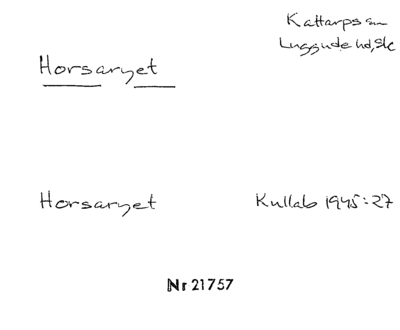 Kattarps sn
Luggude hd, Sk
Horsaryet
Horsaryet Kullab 1945:27
Nr 21757